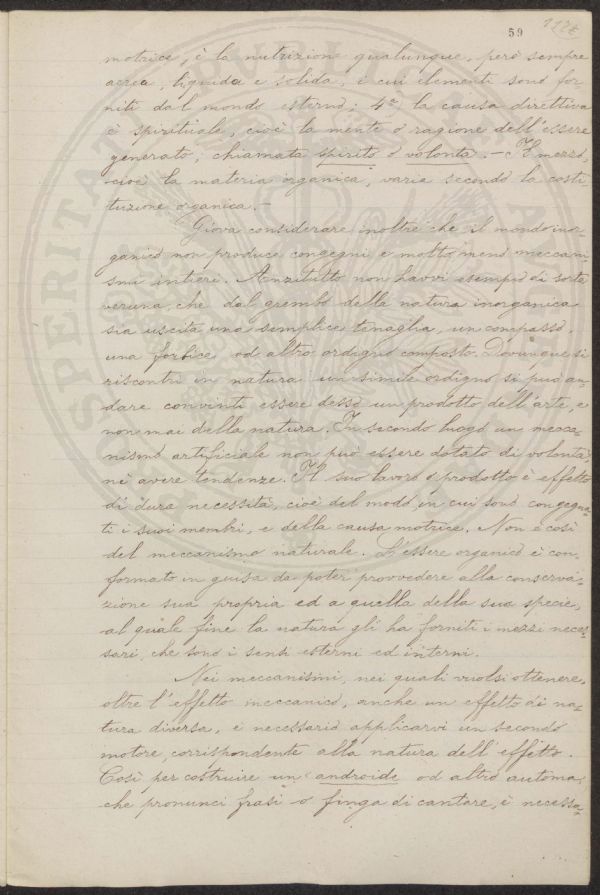 59
motrice, è la nutrizione qualunque, però sempre
aerea, liquida e solida, i cui elementi sono for-
niti dal mondo esterno; 4º la causa direttiva
è spirituale, cioè la mente o ragione dell'essere
generato, chiamata spirito o volontà. - Il mezzo,
cioè la materia organica, varia secondo la costi-
tuzione organica. -
Giova considerare inoltre che il mondo inor-
ganico non produce congegni e molto meno meccani
smi intieri. Anzitutto non havvi esempio di sorta
veruna, che dal grembo della natura inorganica
sia uscita una semplice tenaglia, un compasso,
una forbice od altro ordigno composto. Dovunque si
riscontri in natura un simile ordigno si può an-
dare convinti essere desso un prodotto dell'arte, e
non mai della natura. In secondo luogo un mecca-
nismo artificiale non può essere dotato di volontà,
nè avere tendenze. Il suo lavoro o prodotto è effetto
di dura necessità, cioè del modo in cui sono congegna=
ti i suoi membri, e della causa motrice. Non è così
del meccanismo naturale. L'essere organico è con-
formato in guisa da poter provvedere alla conserva=
zione sua propria ed a quella della sua specie,
al quale fine la natura gli ha forniti i mezzi neces=
sari, che sono i sensi esterni ed interni.
Nei meccanismi, nei quali vuolsi ottenere,
oltre l'effetto meccanico, anche un effetto di na=
tura diversa, è necessario applicarvi un secondo
motore, corrispondente alla natura dell'effetto.
Così per costruire un androide od altro automa,
che pronunci frasi o finga di cantare, è necessa=